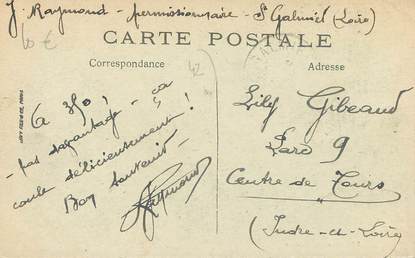 J. Raymond - permissionnaire - St Galmier (Loire)
10 €
CARTE POSTALE
Correspondance
Adresse
42
- pas - ça
coule délicieusement !
Bon souvenir -
JRaymond
Lily Gibeaud
9
Centre de Tours
(Indre-et-Loire)